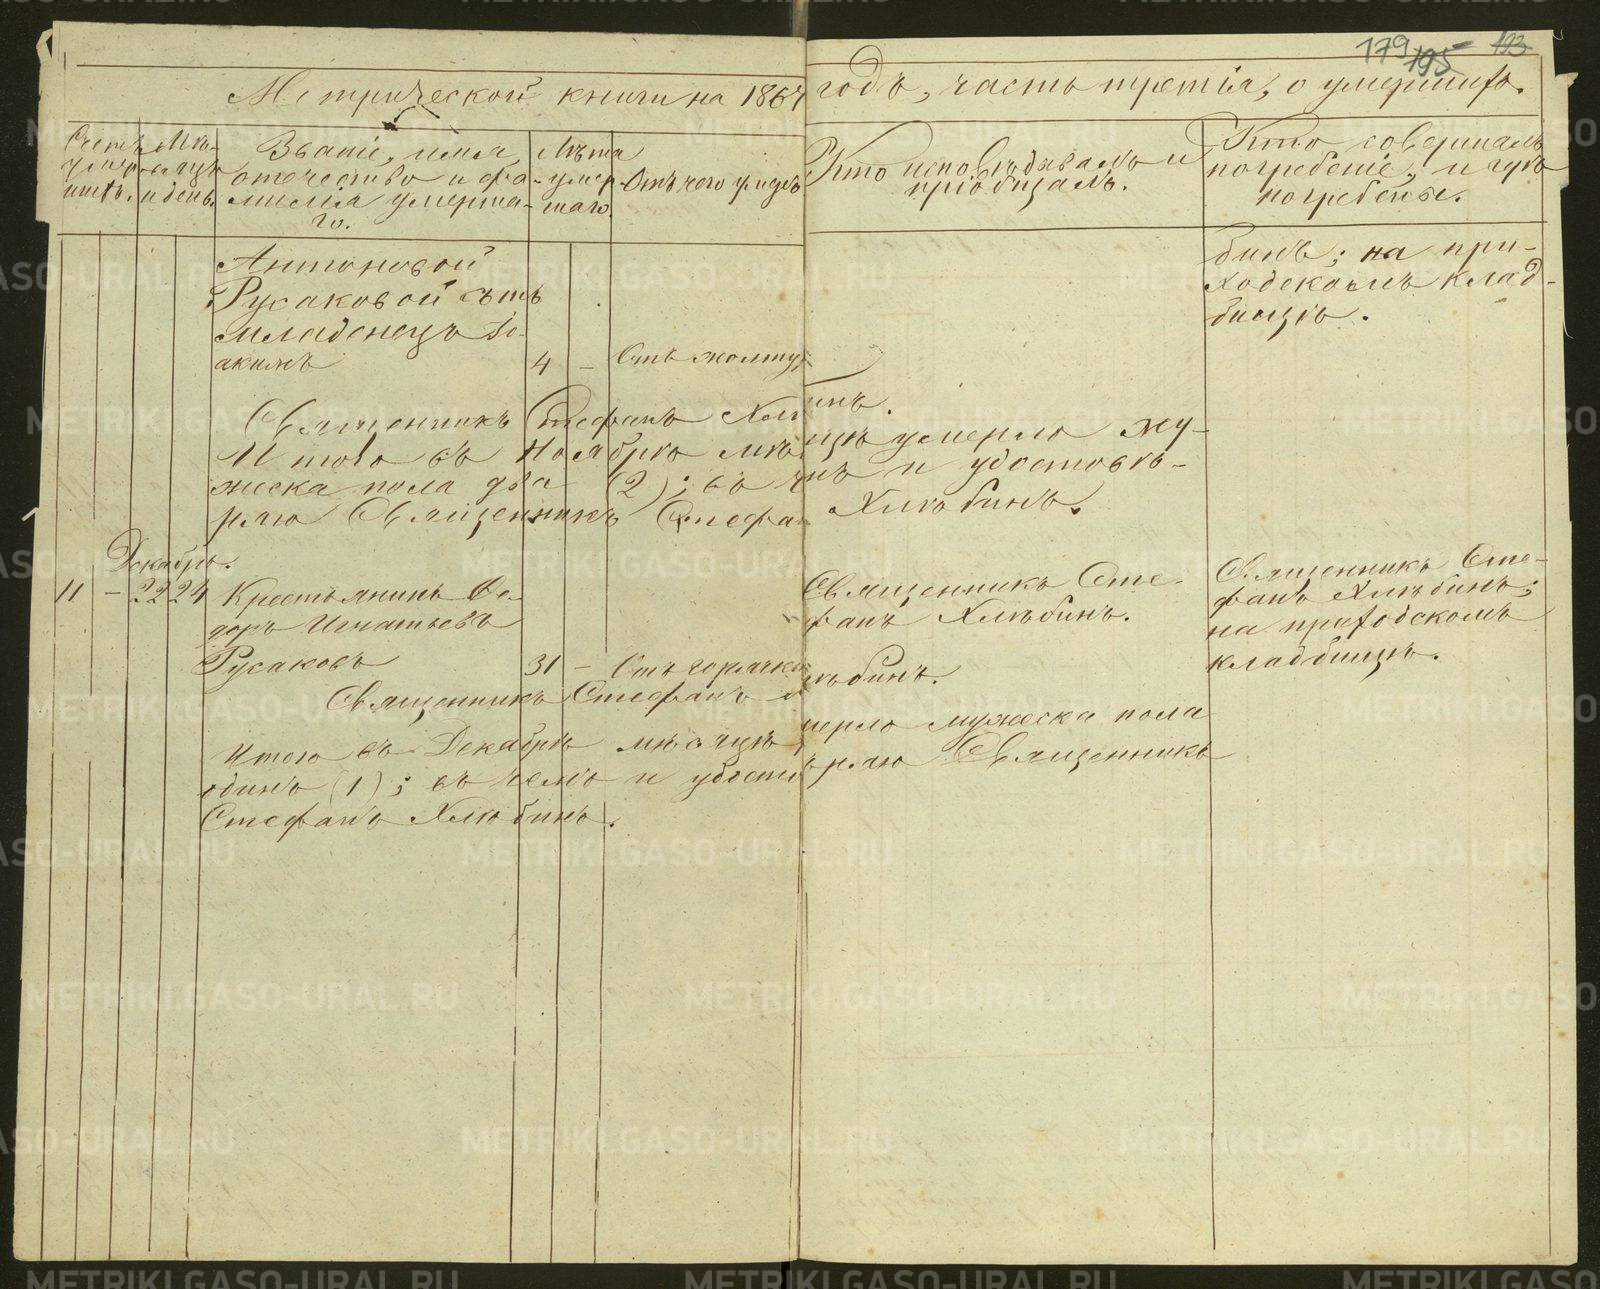 179 195 193
Метрической книги на 1864 годъ, часть третія, о умершихъ.
Счетъ умершихъ.
Мѣсяцъ и день.
Званіе, имя,
отечество и фа-
милія умерша-
го.
Лѣта
умер-
шаго.
Отъ чего умеръ
Кто исповѣдывалъ и
пріобщалъ.
Кто совершалъ
погребеніе, и гдѣ
погребены.
Антоновой
Русаковой сынъ
младенецъ Іо-
акимъ
4 – Отъ желту
бинъ; на при-
ходскомъ клад-
бищѣ.
Священникъ Стефанъ Хлѣбинъ.
Итого въ Ноябрѣ мѣсяцѣ умерло му-
жеска пола два (2); въ чемъ и удостовѣ-
ряю Священникъ Стефанъ Хлѣбинъ.
Декабрь.
11 – 22 24 Крестьянинъ Ѳе-
доръ Игнатьевъ
Русаковъ
31 – Отъ горячки
Священникъ Сте-
фанъ Хлѣбинъ.
Священникъ Сте-
фанъ Хлѣбинъ;
на приходскомъ
кладбищѣ.
Священникъ Стефанъ Хлѣбинъ.
Итого въ Декабрѣ мѣсяцѣ умерло мужеска пола
одинъ (1); въ чемъ и удостовѣряю Священникъ
Стефанъ Хлѣбинъ.
METRIKI.GASO-URAL.RU